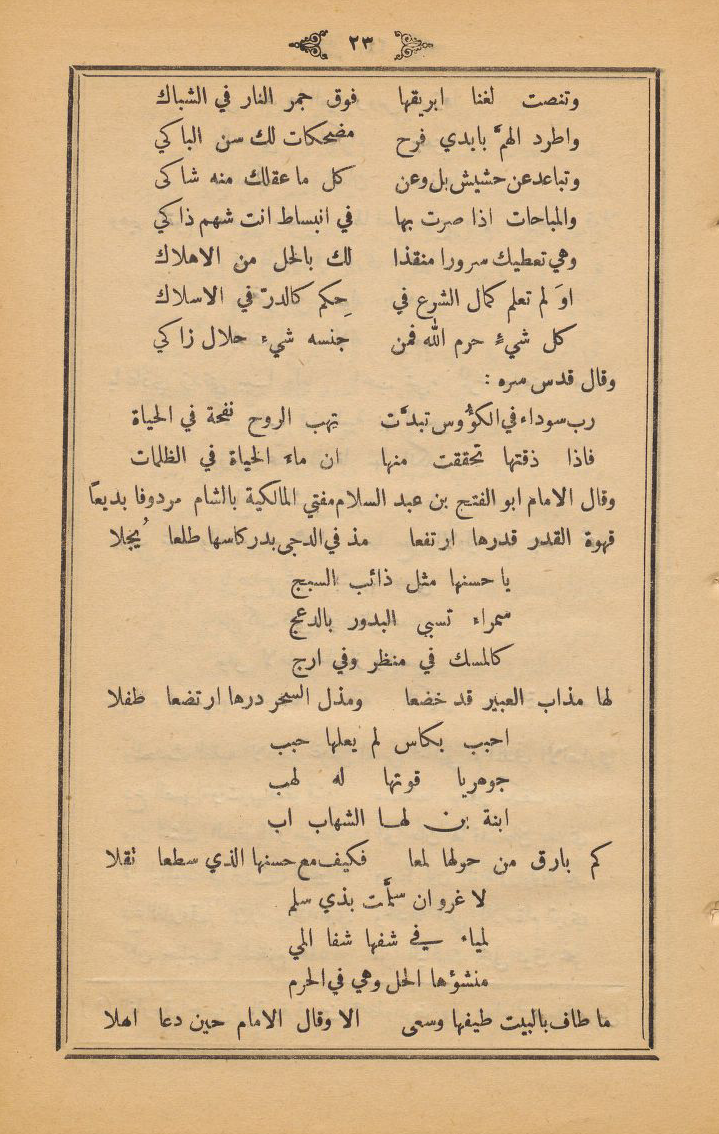 ٢٣
وتنصت لغنا ابريقها فوق جمر النار في الشباك
واطرد الهمَّ بابدي فرح مضحكات لك سن الباكي
وتباعد عن حشيش بل وعن كل ما عقلك منه شاكى
والمباحات اذا صرت بها في انبساط انت شهم ذاكي
وهي تعطيك سرورا منقذا لك بالحل من الاهلاك
اوَ لم تعلم كمال الشرع في حِكم كالدرّ في الاسلاك
كل شيءٍ حرم الله فمن جنسه شيء حلال زاكي
وقال قدس سره :
رب سوداء في الكؤُوس تبدَّت تهب الروح نفحة في الحياة
فاذا ذقتها تحققت منها ان ماء الحياة في الظلمات
وقال الامام ابو الفتح بن عبد السلام مفتي المالكية بالشام مردوفا بديعًا
قهوة القدر قدرها ارتفعا مذ في الدجى بدر كاسها طلعا يُجلا
يا حسنها مثل ذائب السبج
سمراء تسبي البدور بالدعج
كالمسك في منظر وفي ارج
لها مذاب العبير قد خضعا ومذل السحر درها ارتضعا طفلا
احبب بكاس لم يعلها حبب
جوهريا قوتها له لهب
ابنة بن لها الشهاب اب
كم بارق من حولها لمعا فكيف مع حسنها الذي سطعا تقلا
لا غروان سلَّمت بذي سلم
لمياء في شفها شفا المي
منشؤها الحل وهي في الحرم
ما طاف بالبيت طيفها وسعى الا وقال الامام حين دعا اهلا